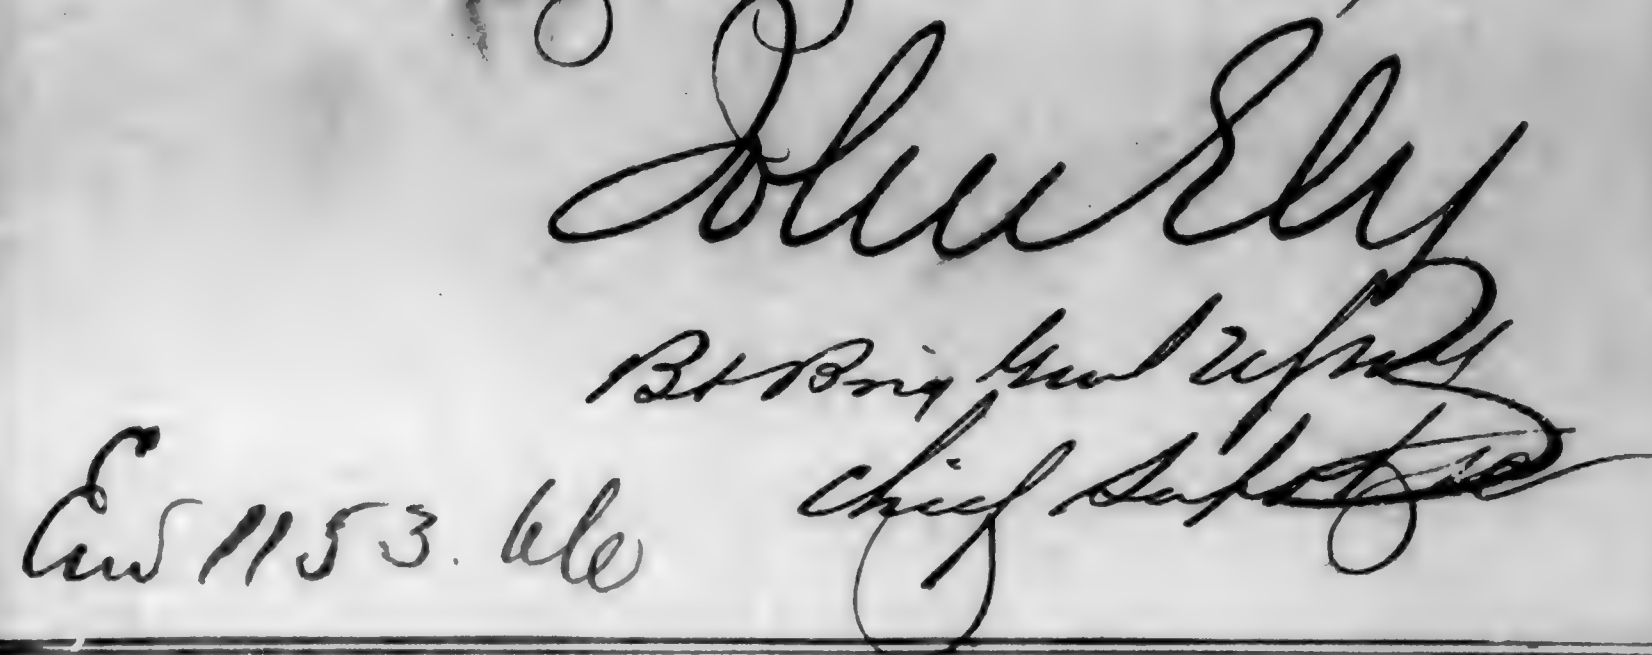 John Ely
Bt Brig Genl Vols
Chief Supt
End 1153. 66